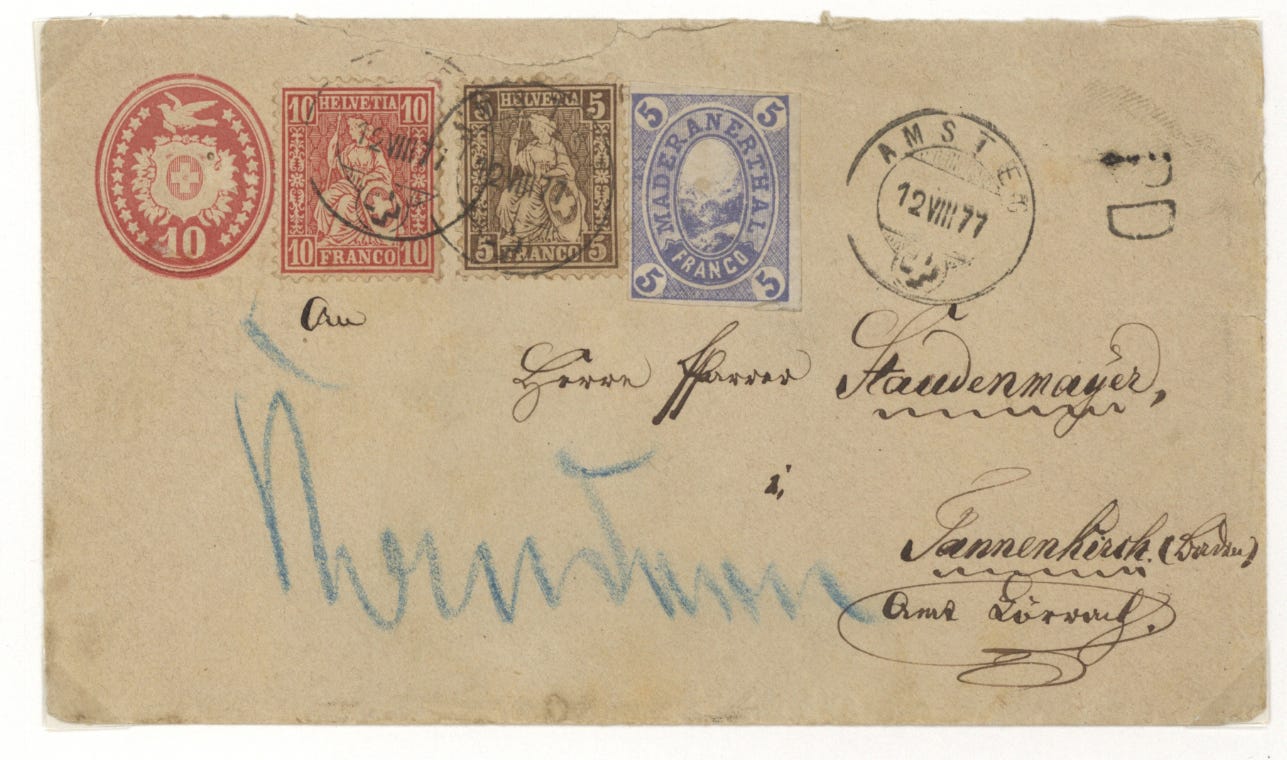 10
10 HELVETIA 10
10 FRANCO 10
5 HELVETIA 5
5 FRANCO 5
5 5
MADERANERTHAL
FRANCO
5 5
12 VIII 77
12 VIII 77
AMSTEG
12 VIII 77
PD
An
Herrn Pfarrer Staudenmayer,
i,
Tannenkirch. (Baden)
Amt Lörrach.